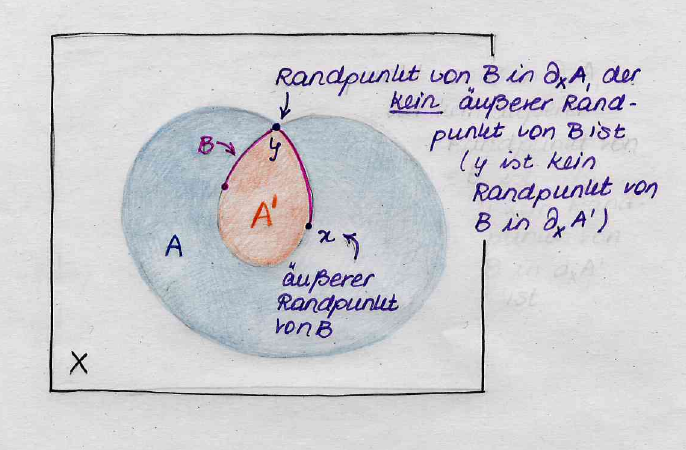 Randpunkt von B in ∂ₓA, der
kein äußerer Rand-
punkt von B ist
(y ist kein
Randpunkt von
B in ∂ₓA')
B
y
A'
A
x
äußerer
Randpunkt
von B
X